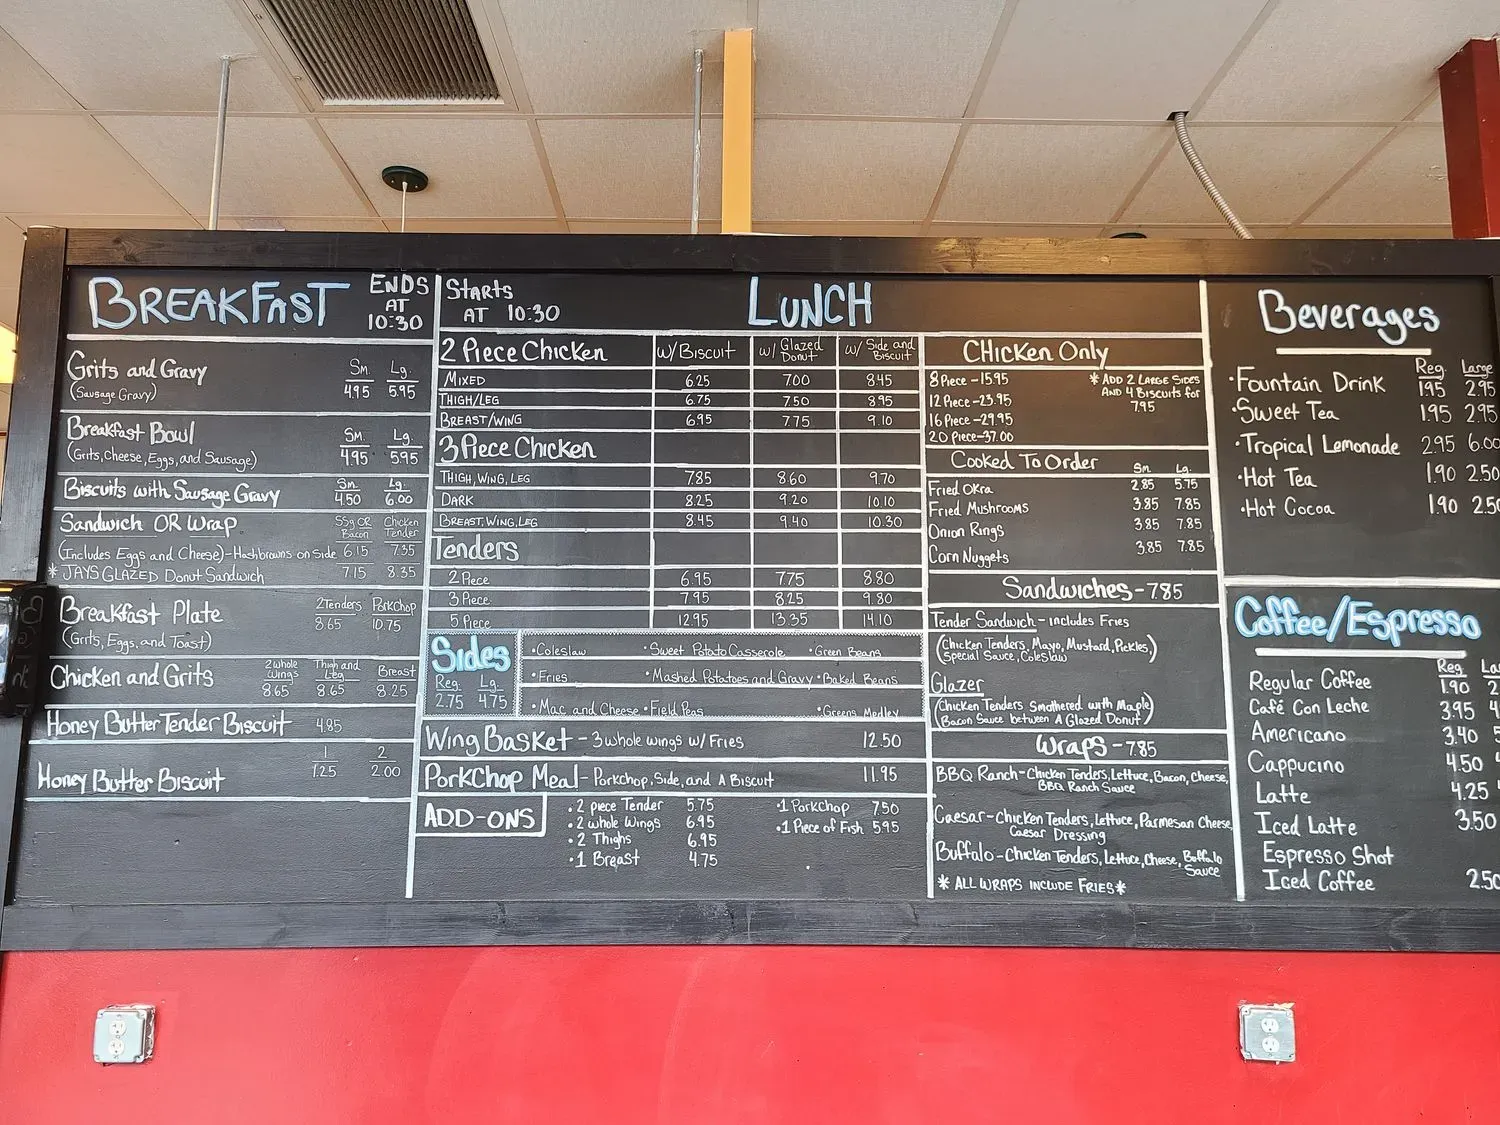 BREAKFAST
ENDS
AT
10:30
Grits and Gravy Sm. Lg.
(Sausage Gravy) 4.95 5.95
Breakfast Bowl Sm. Lg.
(Grits, Cheese, Eggs, and Sausage) 4.95 5.95
Biscuits with Sausage Gravy Sm. Lg.
4.50 6.00
Sandwich OR Wrap SSg OR Bacon Chicken Tender
(Includes Eggs and Cheese)-Hashbrowns on Side 6.15 7.35
* JAYS GLAZED Donut Sandwich 7.15 8.35
Breakfast Plate 2Tenders PorkChop
8.65 10.75
(Grits, Eggs, and Toast)
Chicken and Grits 2 whole Wings Thigh and Leg Breast
8.65 8.65 8.25
Honey Butter Tender Biscuit 4.85
Honey Butter Biscuit 1 2
1.25 2.00
Starts
AT 10:30
LUNCH
2 Piece Chicken w/ Biscuit w/ Glazed Donut w/ Side and Biscuit
MIXED 6.25 7.00 8.45
THIGH/LEG 6.75 7.50 8.95
BREAST/WING 6.95 7.75 9.10
3 Piece Chicken
THIGH, WING, LEG 7.85 8.60 9.70
DARK 8.25 9.20 10.10
BREAST, WING, LEG 8.45 9.40 10.30
Tenders
2 Piece 6.95 7.75 8.80
3 Piece 7.95 8.25 9.80
5 Piece 12.95 13.35 14.10
Sides
Reg. Lg.
2.75 4.75
•Coleslaw •Sweet Potato Casserole •Green Beans
•Fries •Mashed Potatoes and Gravy •Baked Beans
•Mac and Cheese •Field Peas •Greens Medley
Wing Basket - 3 whole wings w/ Fries 12.50
PorkChop Meal - Porkchop, Side, and A Biscuit 11.95
ADD-ONS
•2 piece Tender 5.75
•2 whole Wings 6.95
•2 Thighs 6.95
•1 Breast 4.75
•1 PorkChop 7.50
•1 Piece of Fish 5.95
CHicken Only
8 Piece -15.95
12 Piece -23.95
16 Piece -29.95
20 Piece-37.00
* ADD 2 LARGE SIDES
AND 4 Biscuits for
7.95
Cooked To Order Sm. Lg.
Fried Okra 2.85 5.75
Fried Mushrooms 3.85 7.85
Onion Rings 3.85 7.85
Corn Nuggets 3.85 7.85
Sandwiches-7.85
Tender Sandwich - includes Fries
(Chicken Tenders, Mayo, Mustard, Pickles,
Special Sauce, Coleslaw)
Glazer
(Chicken Tenders Smothered with Maple
Bacon Sauce between A Glazed Donut)
Wraps-7.85
BBQ Ranch-Chicken Tenders, Lettuce, Bacon, Cheese,
BBQ Ranch Sauce
Caesar-Chicken Tenders, Lettuce, Parmesan Cheese
Caesar Dressing
Buffalo-Chicken Tenders, Lettuce, Cheese, Buffalo
Sauce
* ALL WRAPS INCLUDE FRIES *
Beverages
Reg. Large
•Fountain Drink 1.95 2.95
•Sweet Tea 1.95 2.95
•Tropical Lemonade 2.95 6.00
•Hot Tea 1.90 2.50
•Hot Cocoa 1.90 2.50
Coffee/Espresso
Reg
Regular Coffee 1.90
Café Con Leche 3.95
Americano 3.40
Cappucino 4.50
Latte 4.25
Iced Latte 3.50
Espresso Shot
Iced Coffee 2.50